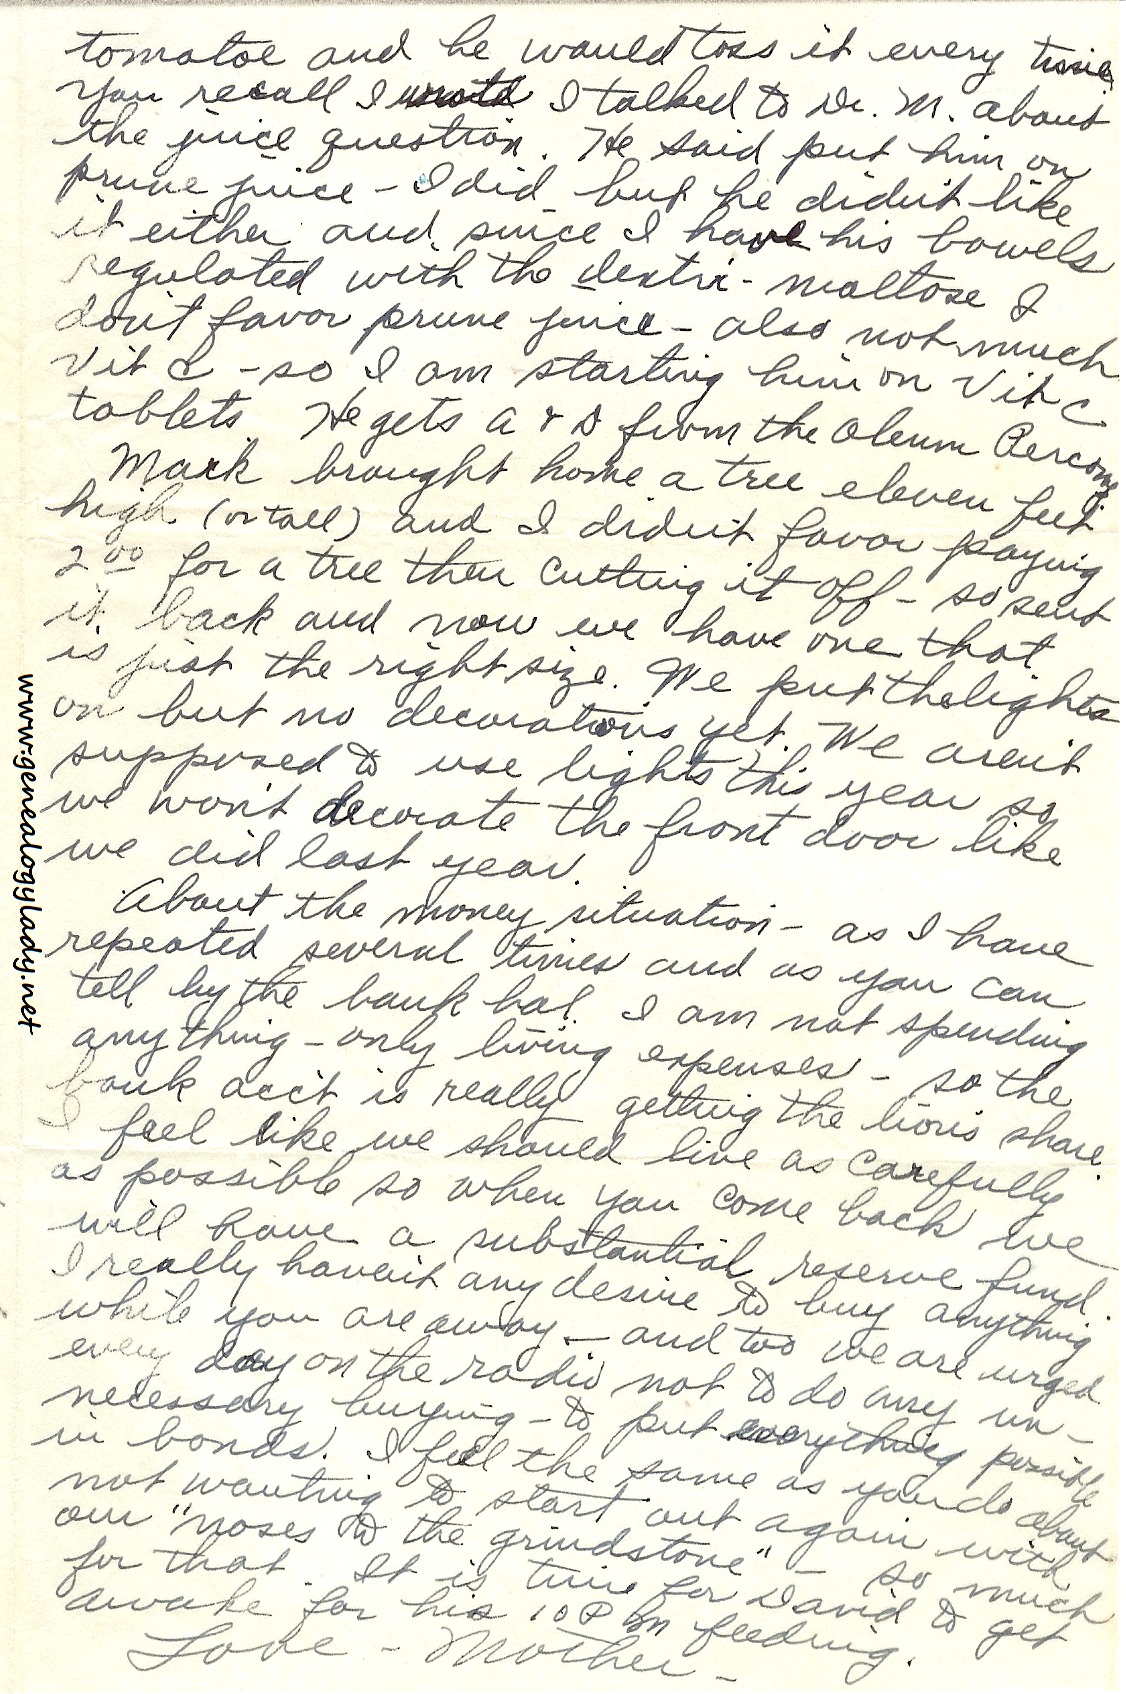 tomatoe and he would toss it every time
You recall I wrote I talked to Dr. M. about
the juice question. He said put him on
prune juice - I did but he didn't like
it either and since I have his bowels
regulated with the dextri-maltose I
don't favor prune juice - also not much
Vit C - so I am starting him on Vit C
tablets He gets A & D from the Oleum Percomorph.
Mark brought home a tree eleven feet
high (or tall) and I didn't favor paying
2.00 for a tree then cutting it off - so sent
it back and now we have one that
is just the right size. We put the lights
on but no decorations yet. We aren't
supposed to use lights this year so
we won't decorate the front door like
we did last year.
About the money situation - as I have
repeated several times and as you can
tell by the bank bal. I am not spending
anything - only living expenses - so the
bank acc't is really getting the lion's share.
I feel like we should live as carefully
as possible so when you come back we
will have a substantial reserve fund.
I really haven't any desire to buy anything
while you are away - and too we are urged
every day on the radio not to do any un-
necessary buying - to put everything possible
in bonds. I feel the same as you do about
not wanting to start out again with
our "noses to the grindstone" - so much
for that. It is time for David to get
awake for his 10 P m feeding.
Love - Mother -
www.genealogylady.net